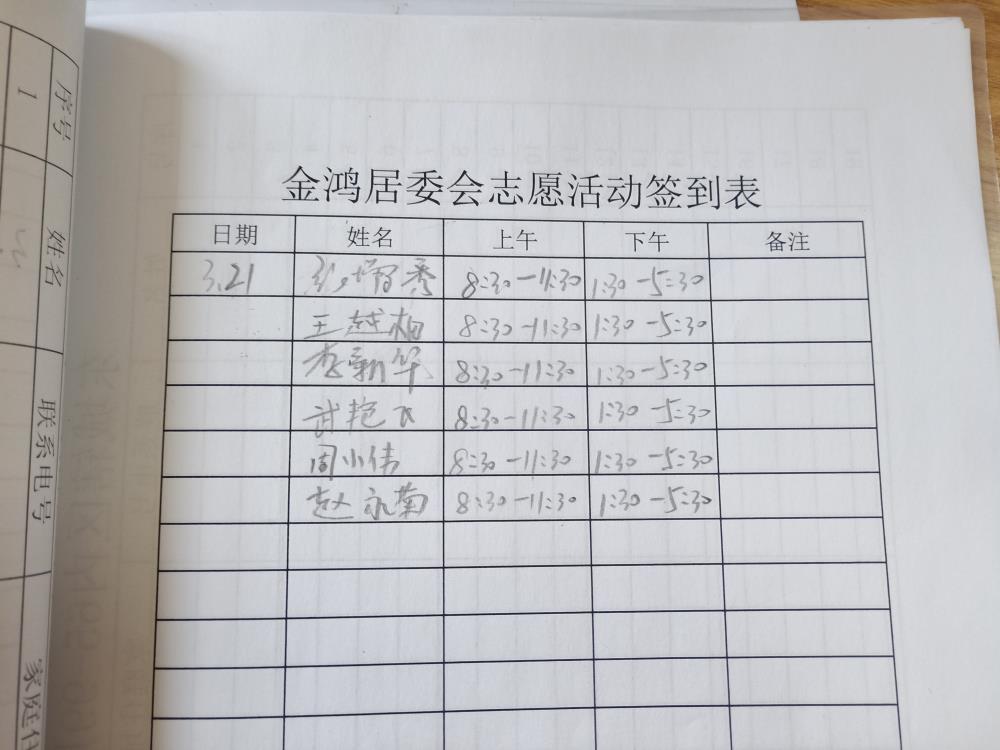 金鸿居委会志愿活动签到表
日期 姓名 上午 下午 备注
3.21 秀 8:30-11:30 1:30-5:30
王越柏 8:30-11:30 1:30-5:30
李新华 8:30-11:30 1:30-5:30
武艳 8:30-11:30 1:30-5:30
周小伟 8:30-11:30 1:30-5:30
赵永菊 8:30-11:30 1:30-5:30
序号 姓名 联系电号 家庭住
1